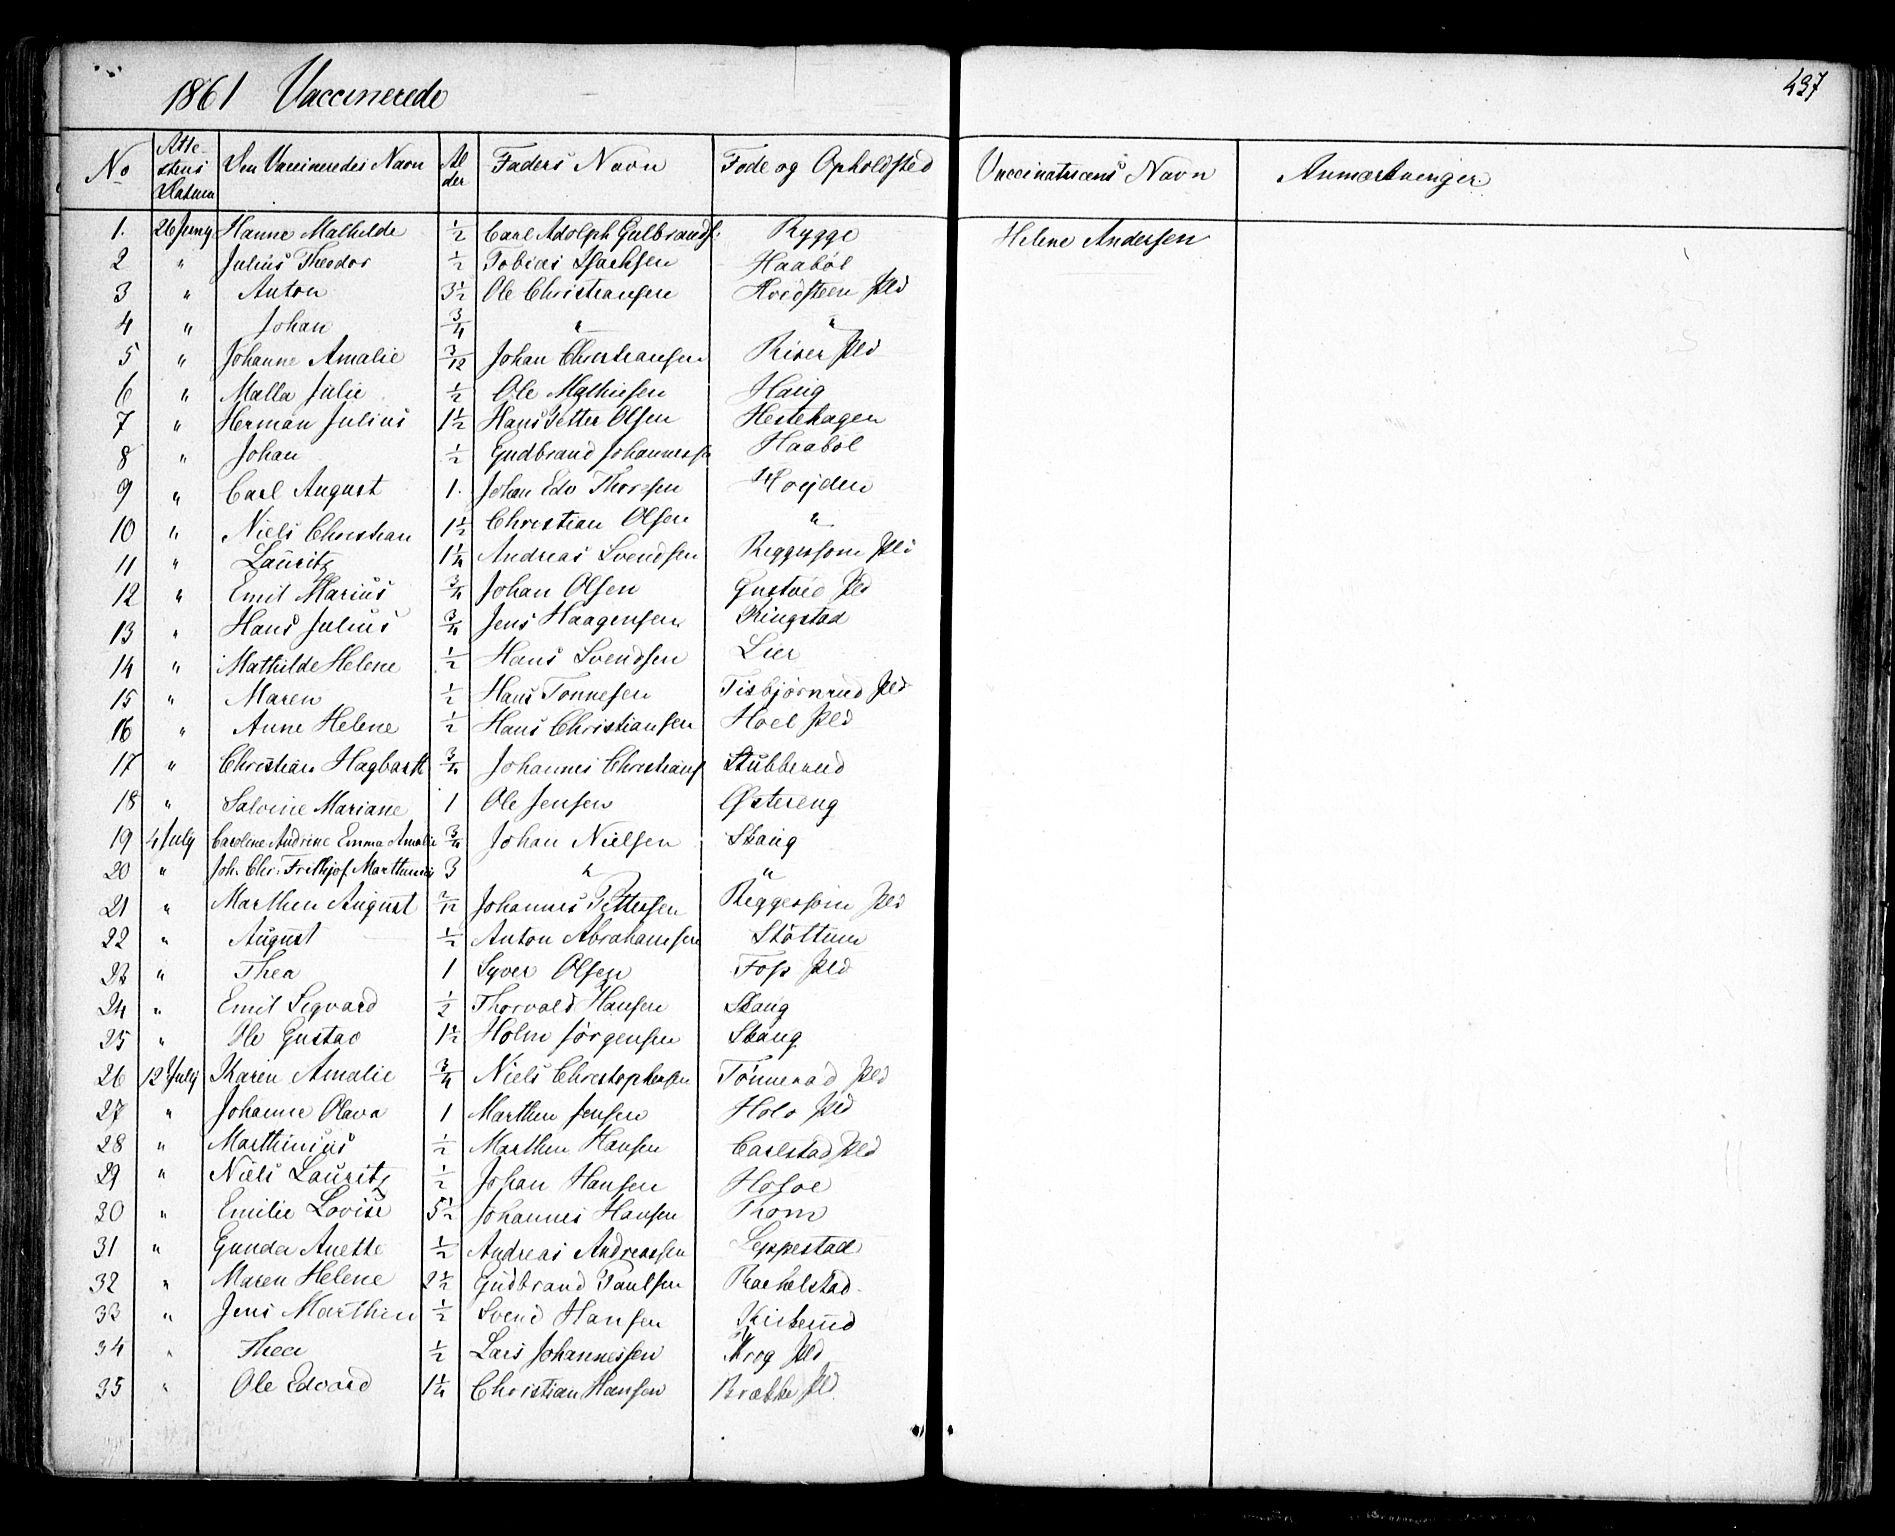 1861 Vaccinerede
437
No | Attestens Datum | Den Vaccineredes Navn | Alder | Faders Navn | Føde og Opholdssted | Vaccinatricens Navn | Anmærkninger
1. | 26 Juny | Hanne Mathilde | 1/2 | Carl Adolph Gulbrands: | Rygge | Helene Andersen
2 | " | Julius Theodor | 1/2 | Tobias Isachsen | Haabøl
3 | " | Anton | 3 1/2 | Ole Christiansen | Hvidsteen Pld
4 | " | Johan | 3/4 | " | "
5 | " | Johanne Amalie | 3/12 | Johan Christiansen | Riser Pld
6 | " | Malla Julie | 1/2 | Ole Mathiesen | Haug
7 | " | Herman Julius | 1 1/2 | Hans Petter Olsen | Hestehagen
8 | " | Johan | 1/2 | Gudbrand Johannesse | Haabøl
9 | " | Carl August | 1. | Johan Edv Thorsen | Høijden
10 | " | Niels Christian | 1 1/2 | Christian Olsen | "
11 | " | Lauritz | 1 1/4 | Andreas Svendsen | Reggessom Pld
12 | " | Emil Marius | 3/4 | Johan Olsen | Pld
13 | " | Hans Julius | 3/4 | Jens Haagensen | Ringstad
14 | " | Mathilde Helene | 1/2 | Hans Svendsen | Lier
15 | " | Maren | 1/2 | Hans Tønnesen | Tisbjørnrud Pld
16 | " | Anne Helene | 1/2 | Hans Christiansen | Hoel Pld
17 | " | Christian Hagbarth | 3/4 | Johannes Christians | Stubberud
18 | " | Salvine Mariane | 1 | Ole Jensen | Østereng
19 | 4 July | Caroline Andrine Emma Amalie | 3/4 | Johan Nielsen | Skaug
20 | " | Joh. Chr. Frithjof Marthinius | 3 | " | "
21 | " | Marthin August | 2/12 | Johannes Pettersen | Reggessom Pld
22 | " | August | 1/2 | Anton Abrahamsen | Støttum
23 | " | Thea | 1 | Syver Olsen | Foss Pld
24 | " | Emil Sigvard | 1/2 | Thorvald Hansen | Skaug
25 | " | Ole Gustav | 1 1/2 | Holm Jørgensen | Skaug
26 | 12 July | Karen Amalie | 3/4 | Niels Christophersen | Tønnerud Pld
27 | " | Johanne Olava | 1 | Marthin Jensen | Holo Pld
28 | " | Marthinius | 1/2 | Marthin Hansen | Carlstad Pld
29 | " | Niels Lauritz | 1/2 | Johan Hansen |
30 | " | Emilie Lovise | 5 1/2 | Johannes Hansen | Krom
31 | " | Gunda Anette | 1/2 | Andreas Andreassen | Leppestad
32 | " | Maren Helene | 2 1/2 | Gudbrand Paulsen | Rakelstad
33 | " | Jens Marthin | 1/2 | Svend Hansen | Kirkerud
34 | " | Thea | 1/2 | Lars Johannessen | Krog Pld
35 | " | Ole Edvard | 1 1/4 | Christian Hansen | Brække Pld